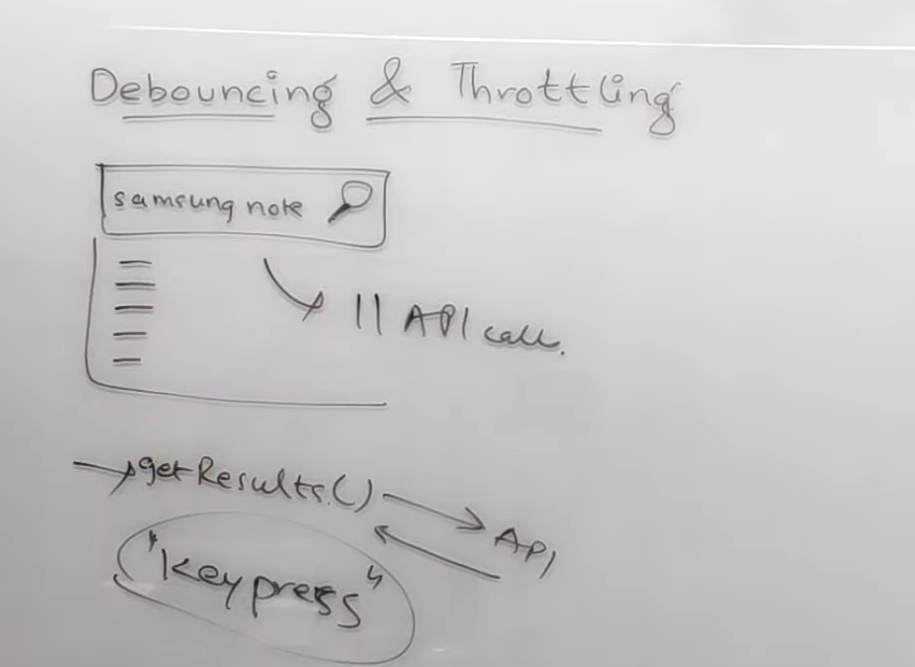 Debouncing & Throttling
samsung note
11 API call.
getResults.()
API
"keypress"